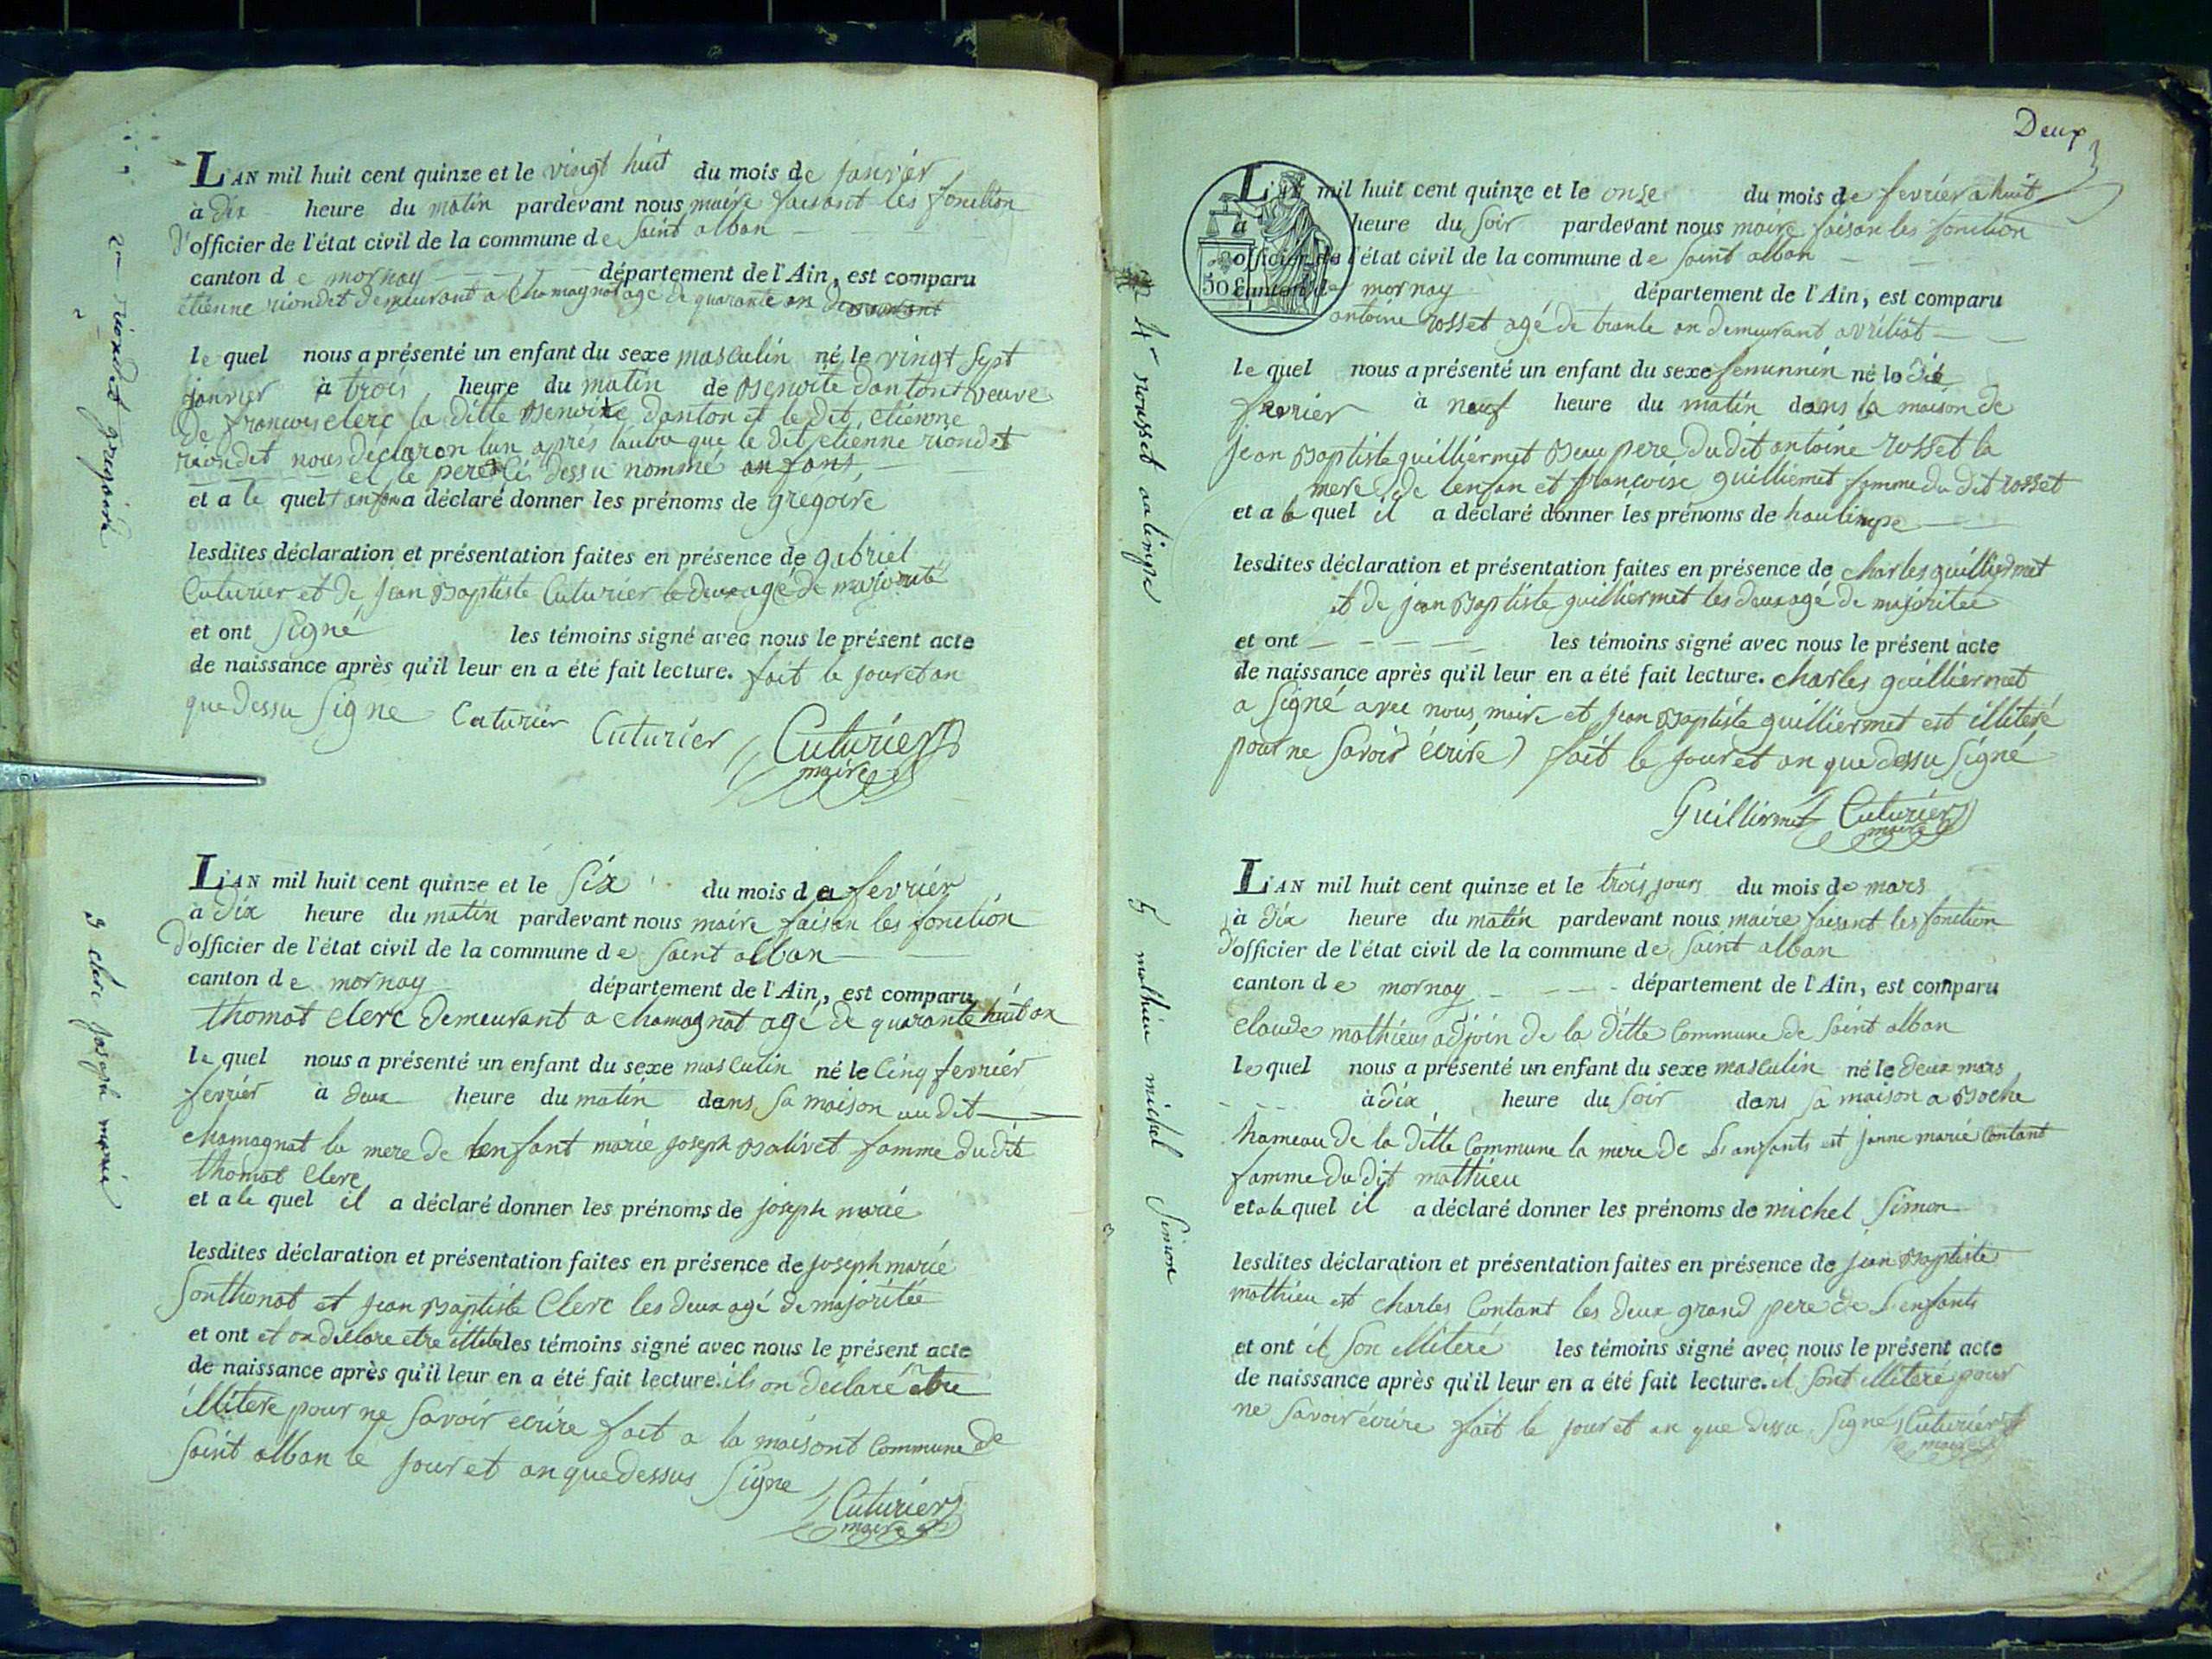 2me riondet gregoire
L'AN mil huit cent quinze et le vingt huit du mois de janvier
à dix heure du matin pardevant nous maire faisant les fonction
d'officier de l'état civil de la commune de saint alban
canton de mornay département de l'Ain, est comparu
etienne riondet demeurant a chamagnat agé de quarante an
le quel nous a présenté un enfant du sexe masculin né le vingt sept
janvier à trois heure du matin de Benoite danton veuve
de francois clerc la ditte Benoite danton et le dit etienne
riondet nous déclaron lun aprés lautre que le dit etienne riondet
et le pere ci dessu nommé
et a le quel enfan a déclaré donner les prénoms de gregoire
lesdites déclaration et présentation faites en présence de gabriel
Cuturier et de jean Baptiste Cuturier le deux agé de majorité
et ont signé les témoins signé avec nous le présent acte
de naissance après qu'il leur en a été fait lecture. fait le jour et an
que dessu signe Cuturier Cuturier Cuturier
maire
3 clerc joseph marie
L'AN mil huit cent quinze et le six du mois de fevrier
à dix heure du matin pardevant nous maire faison les fonction
d'officier de l'état civil de la commune de saint alban
canton de mornay département de l'Ain, est comparu
thomat clerc demeurant a chamagnat agé de quarante huit an
le quel nous a présenté un enfant du sexe masculin né le cinq fevriér
fevriér à deux heure du matin dans sa maison au dit
chamagnat la mere de lenfant marie joseph Balivet famme du dit
thomat clerc
et a le quel il a déclaré donner les prénoms de joseph marie
lesdites déclaration et présentation faites en présence de joseph marie
Sonthonat et jean Baptiste Clerc les deux agé de majoritée
et ont et on declare etre illitere les témoins signé avec nous le présent acte
de naissance après qu'il leur en a été fait lecture. ils on declaré être
illitere pour ne savoir ecrire fait a la maisont commune de
saint alban le jour et an que dessus signe Cuturier
maire
Deux
4e rousset aulimpe
L'AN mil huit cent quinze et le onze du mois de fevrier a huit
à heure du soir pardevant nous maire faison les fonction
officier de l'état civil de la commune de saint alban
canton de mornay département de l'Ain, est comparu
50 c
antoine rosset agé de trante an demeurant a vriliat
le quel nous a présenté un enfant du sexe femennin né le dix
fevrier à neuf heure du matin dans la maison de
jean Baptiste guilliermet Beau pere du dit antoine rosset la
mere de lenfan et francoise guilliermet famme du dit rosset
et a le quel il a déclaré donner les prénoms de haulimpe
lesdites déclaration et présentation faites en présence de charles guilliermet
et de jean Baptiste guilliermet les deux agé de majoritee
et ont les témoins signé avec nous le présent acte
de naissance après qu'il leur en a été fait lecture. charles guilliermet
a signé avec nous maire et jean Baptiste guilliermet est illiteré
pour ne savoir écrire fait le jour et an que dessu signé
Guilliermet Cuturier
maire
5 mathieu michel Simon
L'AN mil huit cent quinze et le trois jours du mois de mars
à dix heure du matin pardevant nous maire faisant les fonction
d'officier de l'état civil de la commune de saint alban
canton de mornay département de l'Ain, est comparu
claude mathieu adjoin de la ditte commune de saint alban
le quel nous a présenté un enfant du sexe masculin né le deux mars
à dix heure du soir dans sa maison a Boche
hameau de la ditte commune la mere de L'anfants est janne marie contant
famme du dit mathieu
et a le quel il a déclaré donner les prénoms de michel simon
lesdites déclaration et présentation faites en présence de jean Baptiste
mathieu et charles Contant les deux grand pere de L'enfants
et ont il son illiteré les témoins signé avec nous le présent acte
de naissance après qu'il leur en a été fait lecture. il sont illiteré pour
ne savoir écrire fait le jour et an que dessu signé Cuturier
maire